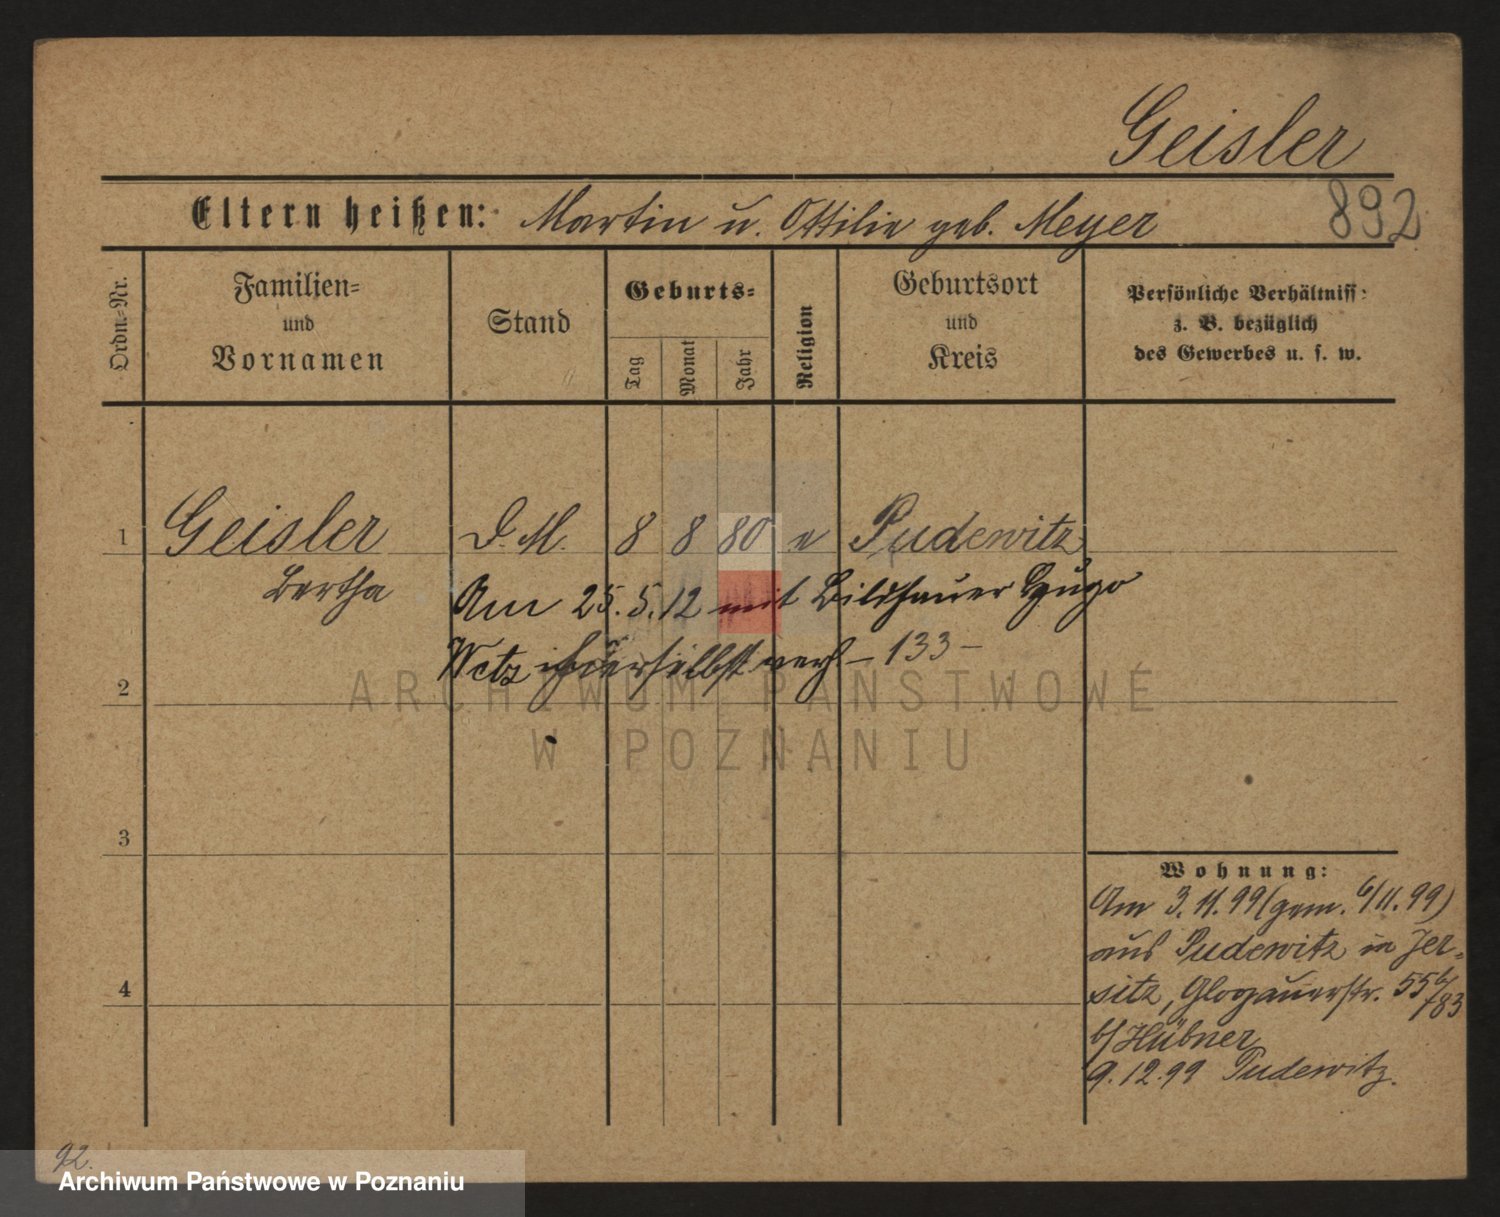 Geisler
Eltern heißen: Martin u. Ottilie geb. Meyer
892
Ordn.-Nr.
Familien-
und
Vornamen
Stand
Geburts-
Tag
Monat
Jahr
Religion
Geburtsort
und
Kreis
Persönliche Verhältniss:
z. B. bezüglich
des Gewerbes u. s. w.
1 Geisler D. M. 8 8 80 e Pudewitz
Bertha
Am 25.5.12 mit Bildhauer Hugo
Wetz hierselbst verh – 133 –
2
ARCHIWUM PAŃSTWOWE
W POZNANIU
3
Wohnung:
Am 3.11.99 (gem. 6/11.99)
aus Pudewitz in Jer-
4
sitz, Glogauerstr. 55
b/ Hübner
9.12.99 Pudewitz.
92.
Archiwum Państwowe w Poznaniu